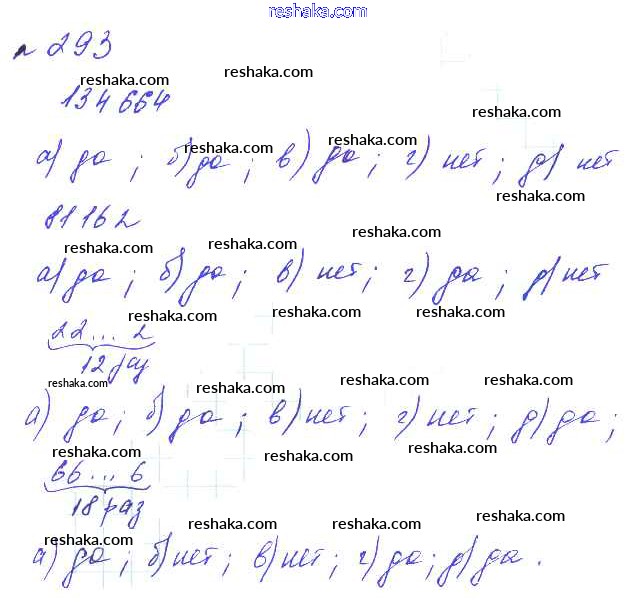 reshaka.com
№ 293
reshaka.com reshaka.com
134 664
reshaka.com
reshaka.com reshaka.com
а) да ; б) да ; в) да ; г) нет ; д) нет
reshaka.com
81162
reshaka.com reshaka.com reshaka.com
а) да ; б) да ; в) нет ; г) да ; д) нет
reshaka.com reshaka.com reshaka.com
22 ... 2
12 раз
reshaka.com reshaka.com reshaka.com reshaka.com
а) да ; б) да ; в) нет ; г) нет ; д) да ;
reshaka.com reshaka.com reshaka.com
66 ... 6
18 раз
reshaka.com reshaka.com reshaka.com
reshaka.com
а) да ; б) нет ; в) нет ; г) да ; д) да .